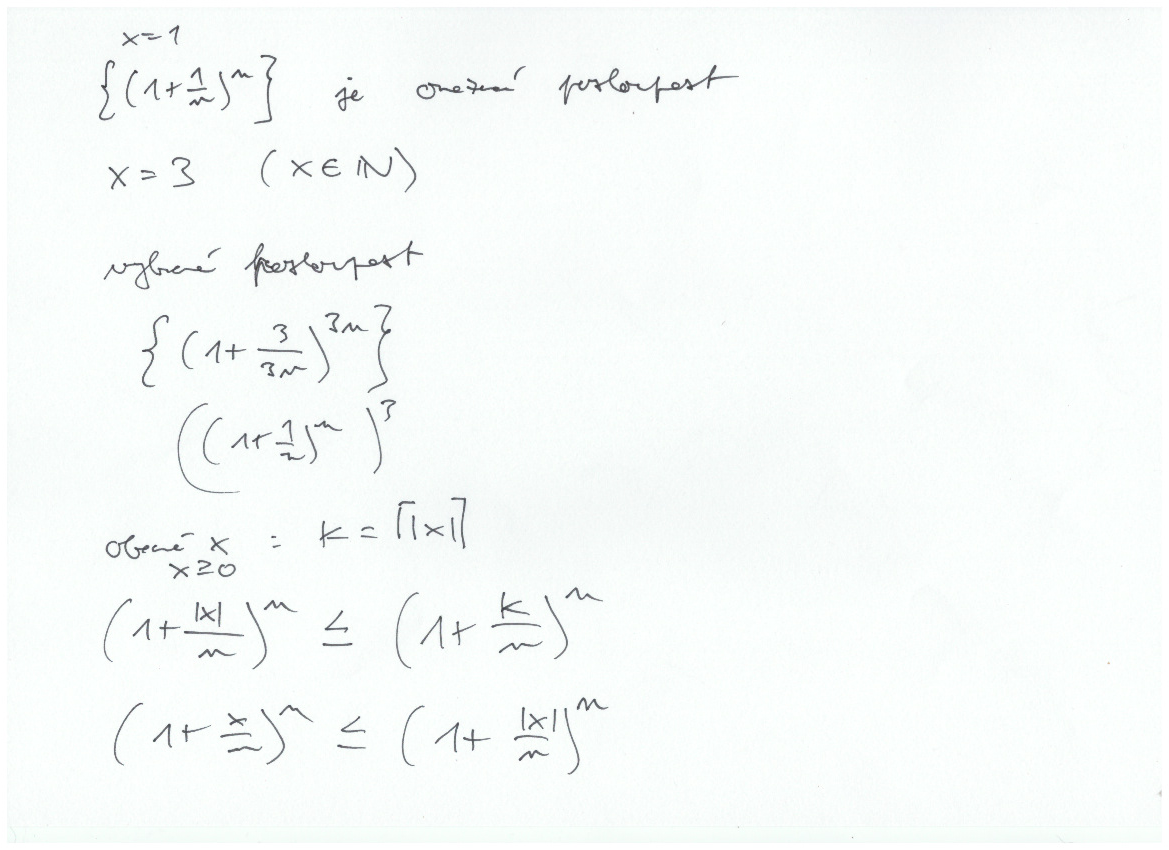 x=1
{(1+1/n)^n} je omezená posloupnost
x = 3 (x ∈ ℕ)
vybraná posloupnost
{(1+3/3n)^3n}
((1+1/n)^n)^3
obecné x : k = ⌈|x|⌉
x≥0
(1+|x|/n)^n ≤ (1+k/n)^n
(1+x/n)^n ≤ (1+|x|/n)^n